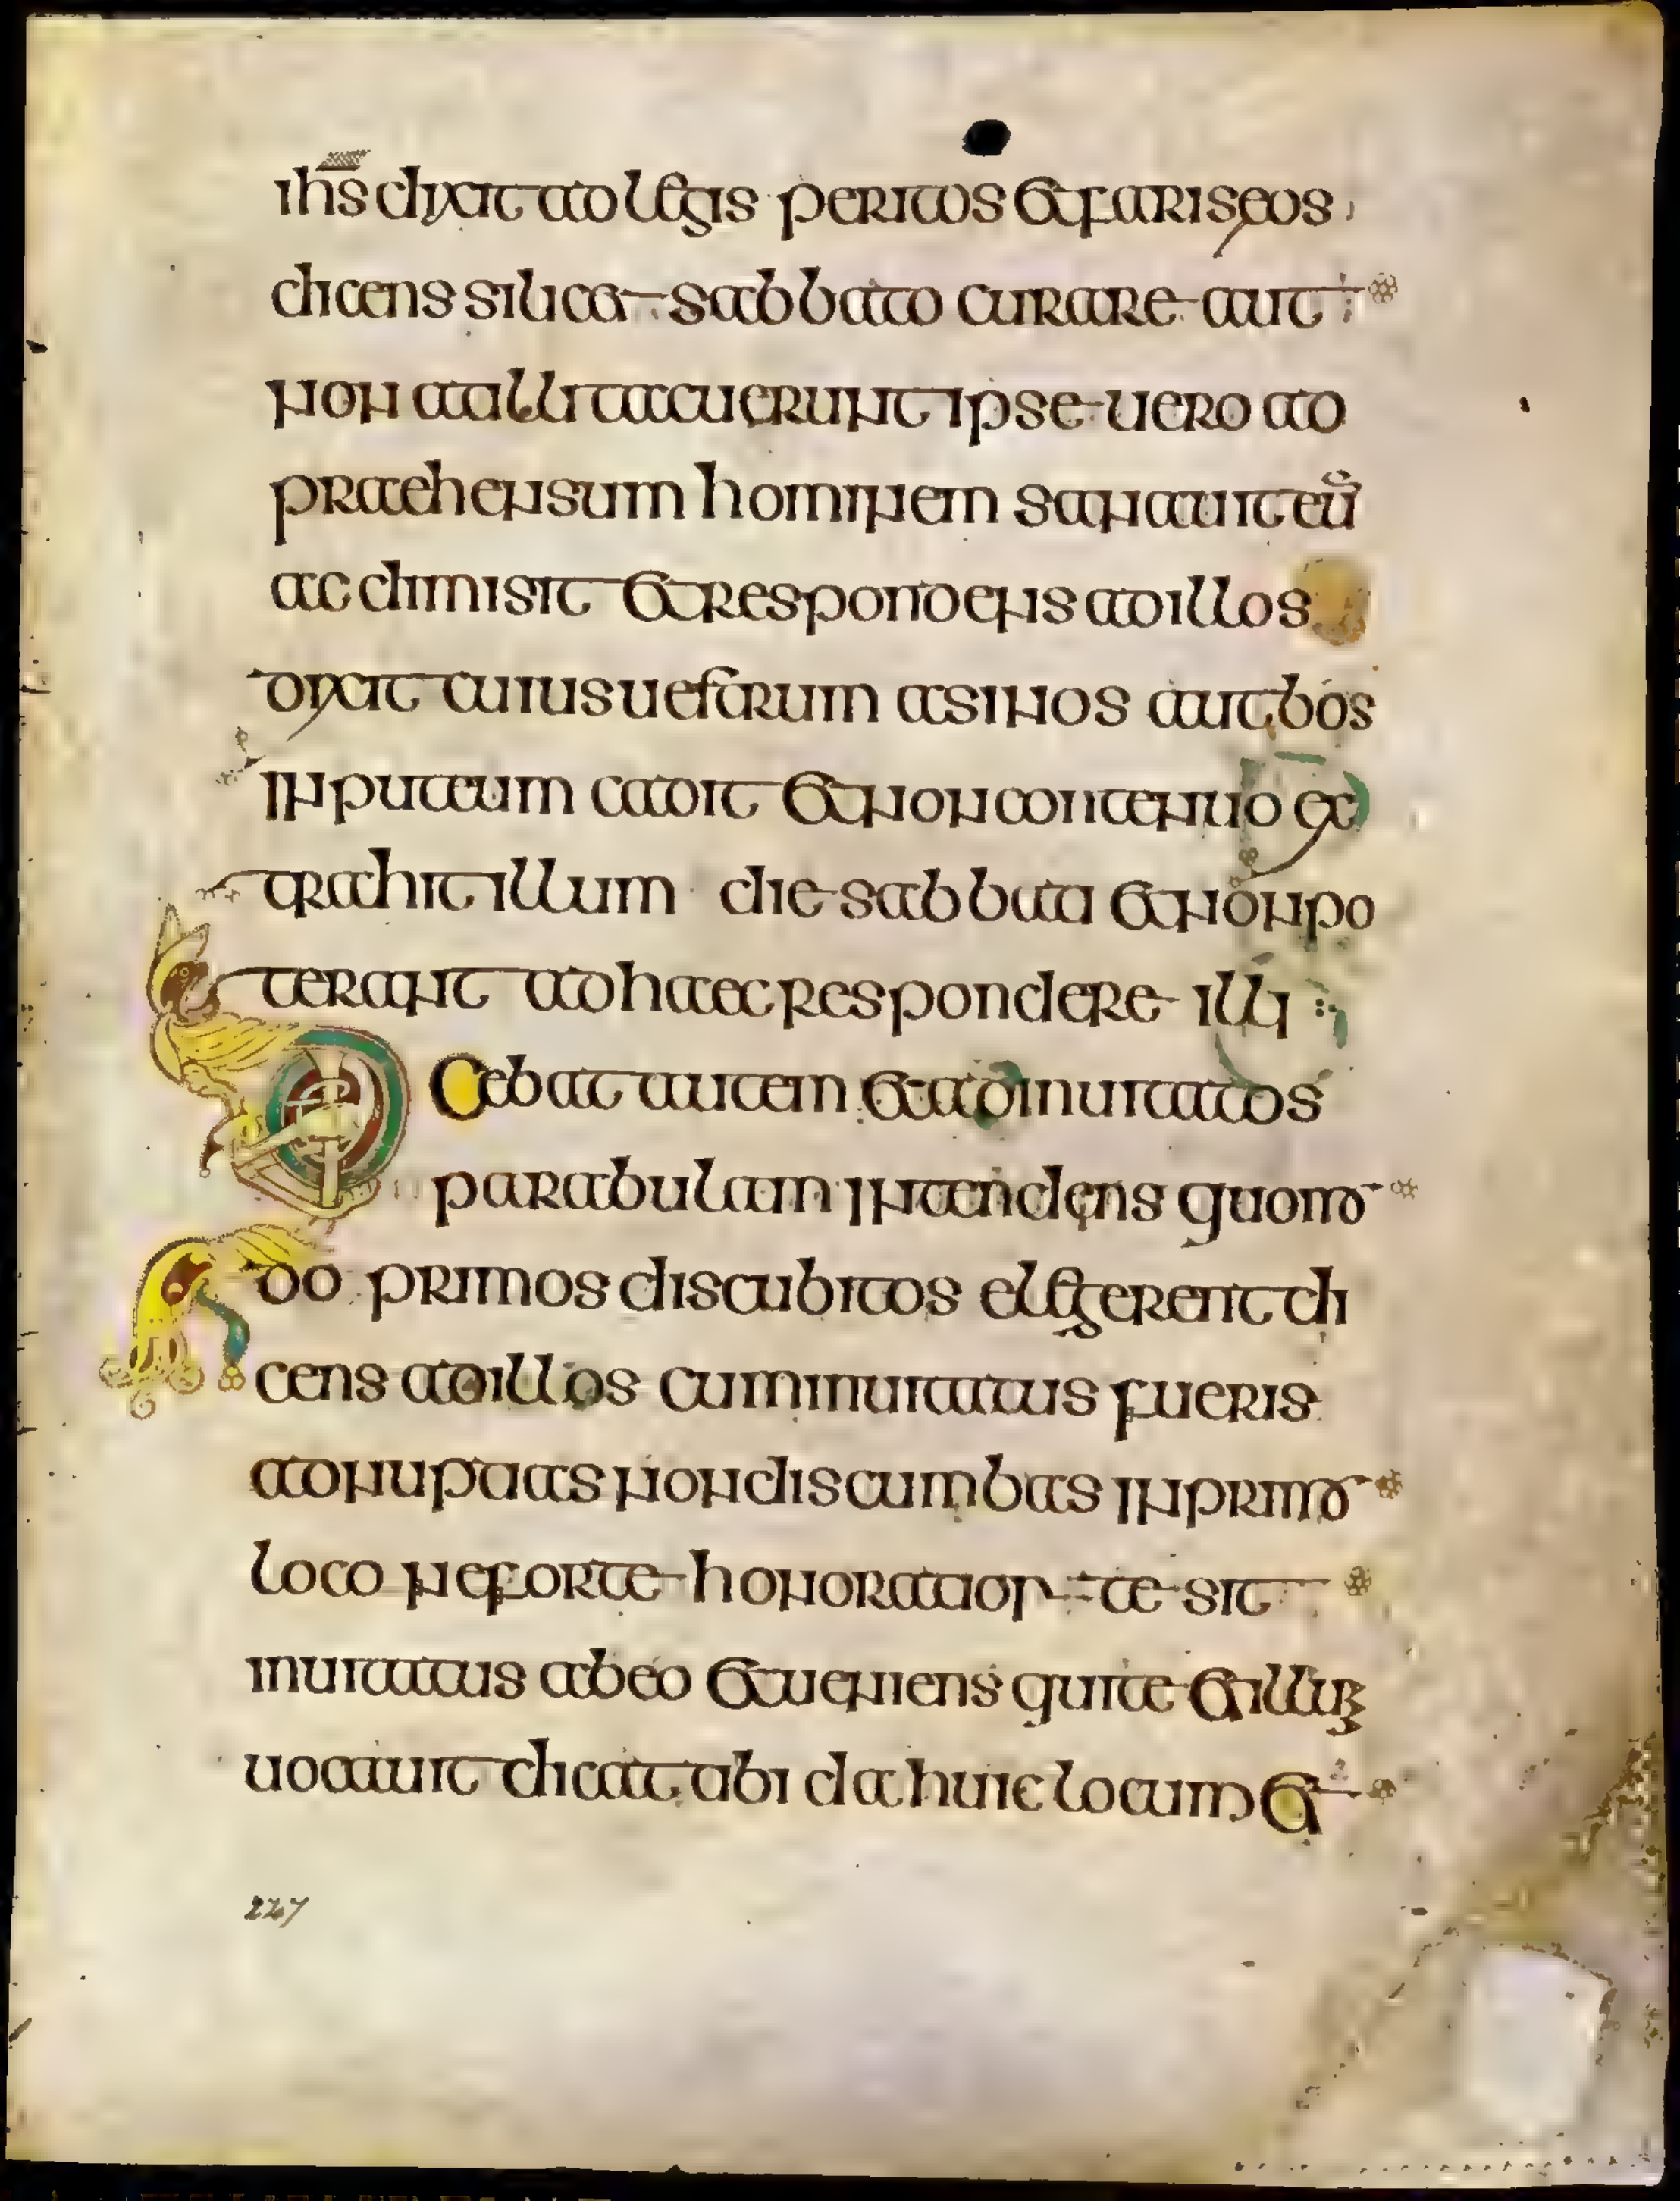 ihs dixit ad legis peritos et fariseos
dicens si licet sabbato curare aut
non at illi tacuerunt ipse uero ad
praehensum hominem sanauit eū
ac dimisit et respondens ad illos
dixit cuius uestrum asinos aut bos
in puteum cadit et non continuo ex
trahit illum die sabbati et non po
terant ad haec respondere illi
Dicebat autem et ad inuitatos
parabulam intendens quomo
do primos discubitos elegerent di
cens ad illos cum inuitatus fueris
ad nuptias non discumbas in primo
loco ne forte honoratior te sit
inuitatus ab eo et ueniens qui te et illum
uocauit dicat tibi da huic locum et
227